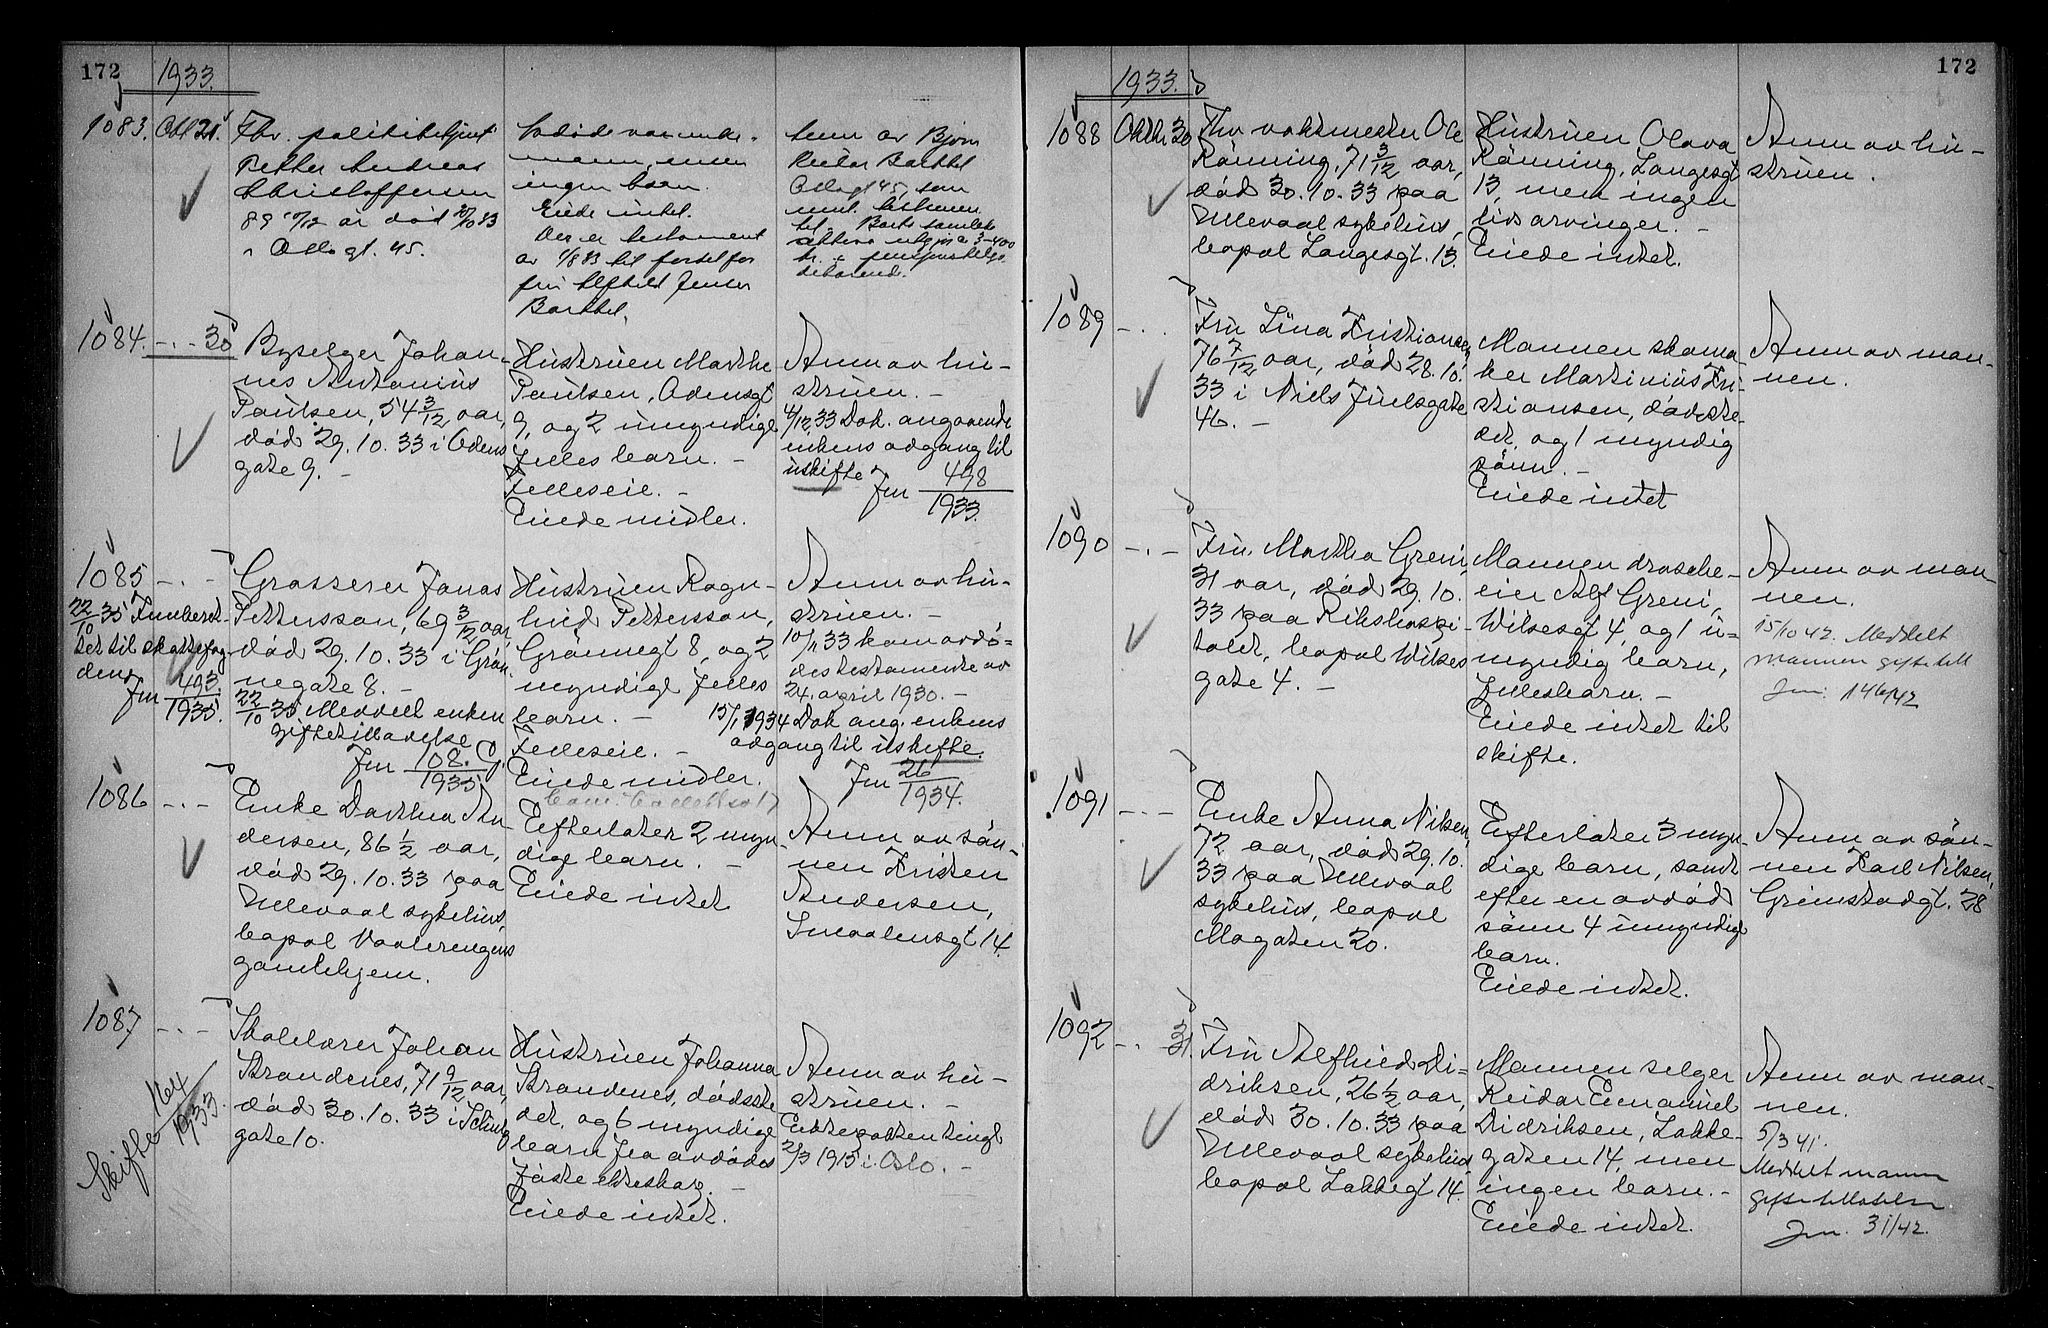 172
1933.
1083.
Okt 21.
Fhv. politibetjent
Petter Andreas
Christoffersen
89 10/12 år død
i Oslogt. 45.
Avdøde var enke-
mann, men
ingen barn.
Eiede intet.
Der er testament
til fordel for
fru Alfhild Jensen
Barthel.
Anm av Bjørn
Reidar Barthel
Oslogt 45, som
1084.
-.- 30
Byselger Johan-
nes Antonius
Paulsen, 54 3/12 aar,
død 29.10.33 i Odens
gate 9. -
Hustruen Marthe
Paulsen, Odensgt
9, og 2 umyndige
felles barn. -
Felleseie. -
Eiede midler.
Anm av hu-
struen. -
4/12 33 Dok. angaaende
enkens adgang til
uskifte
Jnr 498
1933.
1085
-.-
22/10 35 Innberet-
tet til skattefog-
den
Jnr 493.
1935.
Grosserer Jonas
Pettersson, 69 3/12 aar,
død 29.10.33 i Grøn
negate 8. -
22/10 35 Meddelt enken
giftetilladelse
Jnr 108. G.
1935
Hustruen Ragn-
hild Pettersson,
Grønnegt 8, og 2
myndige felles
barn. -
Felleseie. -
Eiede midler.
Anm av hu-
struen. -
10/11 33 kom avdø-
des testamente av
24. april 1930. -
15/1 1934 Dok ang. enkens
adgang til uskifte.
Jnr 26
1934.
1086
-.-
Enke Dorthea An
dersen, 86 1/2 aar,
død 29.10.33 paa
Ullevaal sykehus,
bopæl Vaalerengens
gamlehjem.
Efterlater 2 myn
dige barn. -
Eiede intet
Anm av søn-
nen Kristen
Andersen,
Smaalensgt 14.
1087
-.-
Skifte
1933.
Skolelærer Johan
Strandenes, 71 9/12 aar,
død 30.10.33 i Schus
gate 10.
Hustruen Johanna
Strandenes, dødsste
det, og 6 myndige
barn fra avdødes
første ekteskap. -
Eiede intet.
Anm av hu-
struen. -
Ektepakten tingl
2/3 1915 i Oslo. -
172
1933.
1088
Oktbr 30
Fhv vaktmester Ole
Rønning, 71 3/12 aar,
død 30.10.33 paa
Ullevaal sykehus,
bopæl Langesgt. 13.
Hustruen Olava
Rønning, Langesgt
13, men ingen
livsarvinger. -
Eiede intet.
Anm av hu-
struen.
1089
-.-
Fru Lina Kristiansen
76 7/12 aar, død 28.10.
33 i Niels Juelsgate
46. -
Mannen skoma
ker Martinius Kri
stiansen, dødsste-
det, og 1 myndig
sønn. -
Eiede intet
Anm av man-
nen.
1090
-.-
Fru Martha Greni,
31 aar, død 29.10.
33 paa Rikshospi-
talet, bopæl Wilses
gate 4. -
Mannen drosche-
eier Alf Greni,
Wilsesgt 4, og 1 u-
myndig barn,
fellesbarn. -
Eiede intet til
skifte.
Anm av man
nen.
15/10 42. Meddelt
mannen giftetill
Jnr. 146/42
1091
-.-
Enke Anna Nilsen,
72 aar, død 29.10.
33 paa Ullevaal
sykehus, bopæl
Mogaten 20.
Efterlater 3 myn
dige barn, samt
efter en avdød
sønn 4 umyndige
barn.
Eiede intet.
Anm av søn-
nen Karl Nilsen,
Grimstadgt. 28
1092
-.- 31.
Fru Alfhild Di-
driksen, 26 1/2 aar,
død 30.10.33 paa
Ullevaal sykehus
bopæl Lakkegt 14.
Mannen selger
Reidar Emanuel
Didriksen, Lakke-
gaten 14, men
ingen barn. -
Eiede intet.
Anm av man-
nen.
5/3 41.
Meddelt mann
giftetilladelse
Jnr. 31/42.